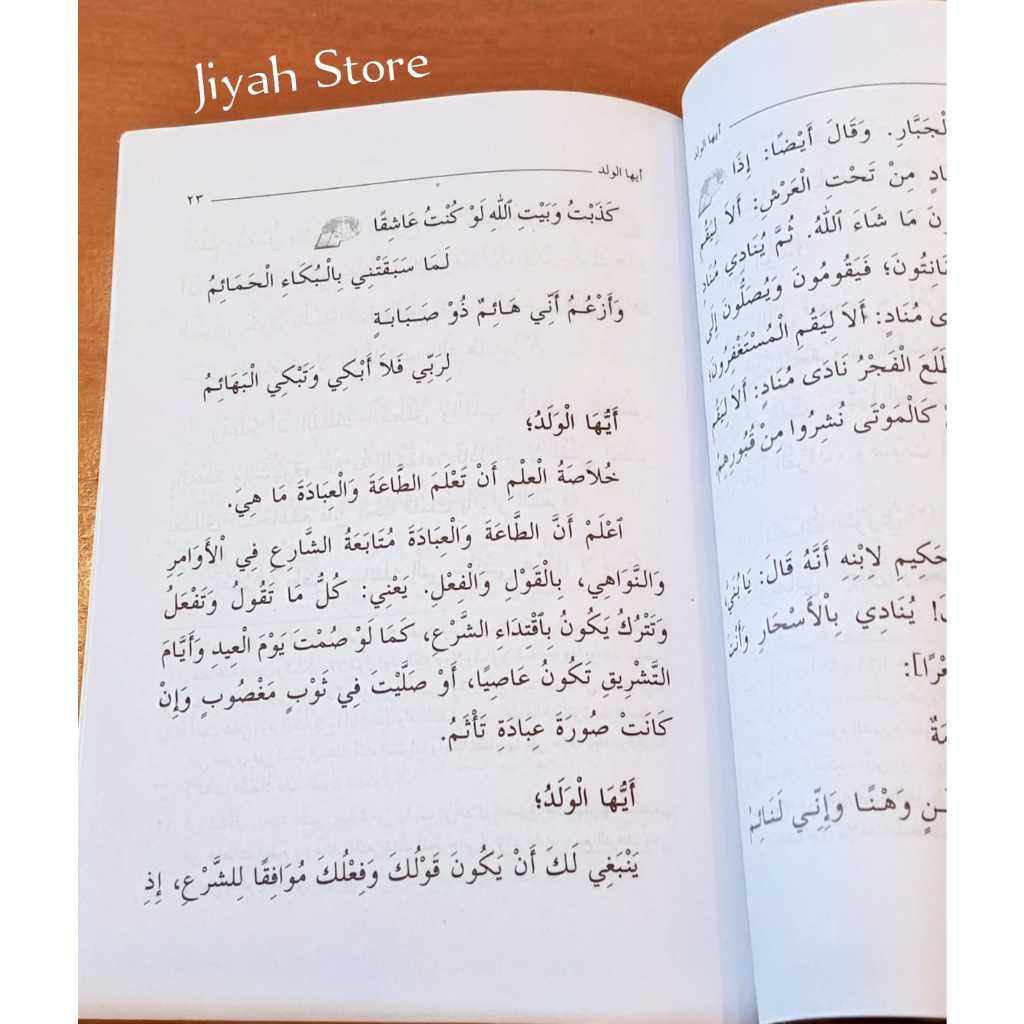 Jiyah Store
أيها الولد
لْجَبَّارِ. وَقَالَ أَيْضًا: إِذَا
ادٍ مِنْ تَحْتِ الْعَرْشِ: أَلاَ لِيَقُم
نَ مَا شَاءَ اللهُ. ثُمَّ يُنَادِي مُنَادٍ
انِتُونَ؛ فَيَقُومُونَ وَيُصَلُّونَ إِلَى
ى مُنَادٍ: أَلاَ لِيَقُمِ الْمُسْتَغْفِرُونَ؛
طَلَعَ الْفَجْرُ نَادَى مُنَادٍ: أَلاَ لِيَقُم
كَالْمَوْتَى نُشِرُوا مِنْ قُبُورِهِمْ
حَكِيمِ لاِبْنِهِ أَنَّهُ قَالَ: يَابُنَيَّ،
! يُنَادِي بِالْأَسْحَارِ وَأَنْتَ
عْرًا]:
مَةٌ
ـنٍ وَهْنًا وَإِنِّي لَنَائِمُ
أيها الولد ٢٣
كَذَبْتُ وَبَيْتِ اللهِ لَوْ كُنْتُ عَاشِقًا
لَمَا سَبَقَتْنِي بِالْبُكَاءِ الْحَمَائِمُ
وَأَزْعُمُ أَنِّي هَائِمٌ ذُوْ صَبَابَةٍ
لِرَبِّي فَلاَ أَبْكِي وَتَبْكِي الْبَهَائِمُ
أَيُّهَا الْوَلَدُ؛
خُلاَصَةُ الْعِلْمِ أَنْ تَعْلَمَ الطَّاعَةَ وَالْعِبَادَةَ مَا هِيَ.
اعْلَمْ أَنَّ الطَّاعَةَ وَالْعِبَادَةَ مُتَابَعَةُ الشَّارِعِ فِي الْأَوَامِرِ
وَالنَّوَاهِي، بِالْقَوْلِ وَالْفِعْلِ. يَعْنِي: كُلُّ مَا تَقُولُ وَتَفْعَلُ
وَتَتْرُكُ يَكُونُ بِاقْتِدَاءِ الشَّرْعِ، كَمَا لَوْ صُمْتَ يَوْمَ الْعِيدِ وَأَيَّامَ
التَّشْرِيقِ تَكُونُ عَاصِيًا، أَوْ صَلَّيْتَ فِي ثَوْبٍ مَغْصُوبٍ وَإِنْ
كَانَتْ صُورَةَ عِبَادَةِ تَأْثَمُ.
أَيُّهَا الْوَلَدُ؛
يَنْبَغِي لَكَ أَنْ يَكُونَ قَوْلُكَ وَفِعْلُكَ مُوَافِقًا لِلشَّرْعِ، إِذِ